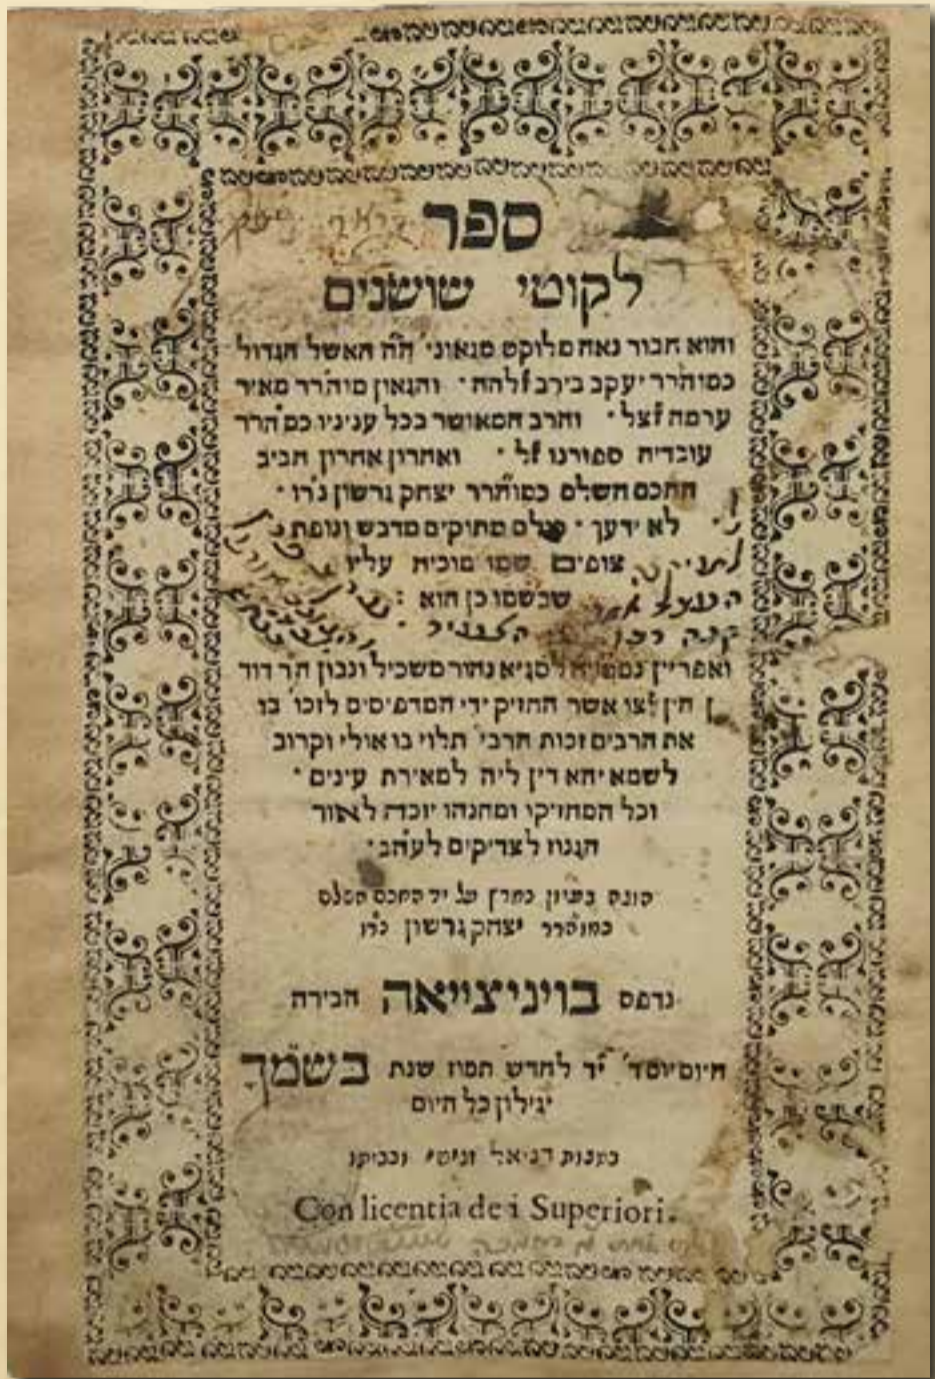 ספר
לקוטי שושנים
והוא חבור נאה מלוקט מגאוני' ה"ה האשל הגדול
כמוהרר יעקב בירב זלהה · והגאון מוהרר מאיר
ערמה זצל · והרב המאושר בכל עניניו כמהרר
עובדיה ספורנו זל · ואחרון אחרון חביב
החכם השלם כמוהרר יצחק גרשון נרו ·
לא ידעך · כולם מתוקים מדבש ונופת
צופים שמו מוכיח עליו
שכשמו כן הוא :
ואפריין למגיא נהור משכיל ונבון הר דוד
חין יצו אשר החזיק ידי המדפיסים לזכו' בו
את הרבים זכות הרבי' תלוי בו אולי וקרוב
לשמא יהא דין ליה למאירת עינים ·
וכל המחזיקי ומהנהו יזכה לאור
הגנוז לצדיקים לעהב ·
הוגה בעיון נמרץ על יד החכם השלם
כמוהרר יצחק גרשון נרו
נדפס בויניציאה הבירה
היום יום ד' יד לחדש תמוז שנת בשמך
יגילון כל היום
במצות דניאל זניטי ובביתו
Con licentia de i Superiori.